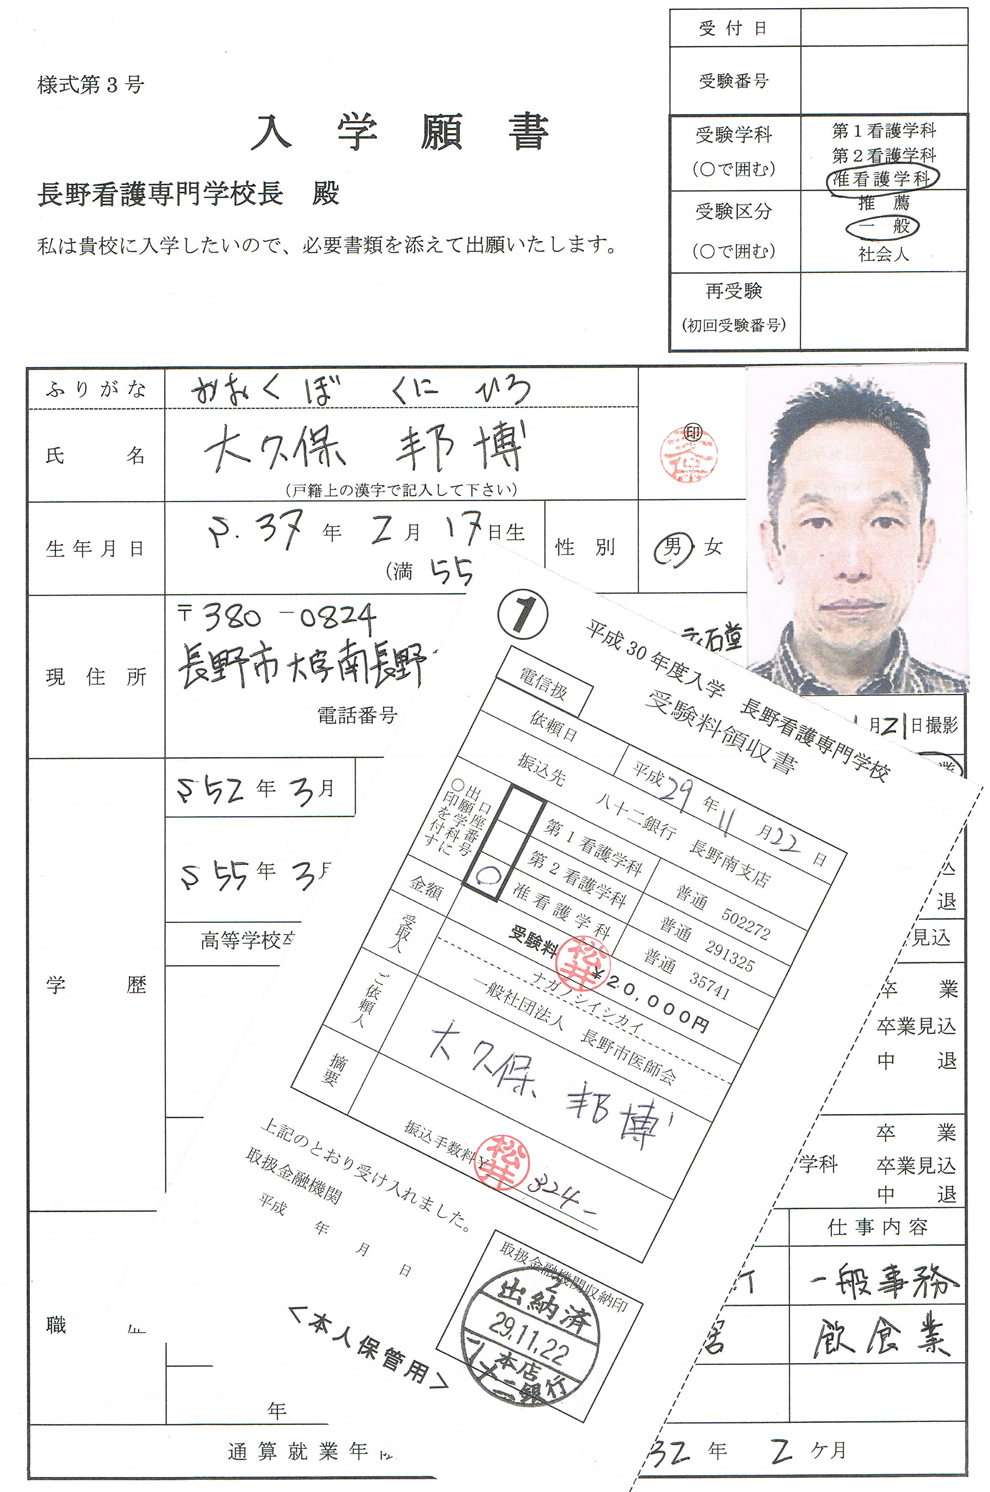 受付日
受験番号
様式第３号
入学願書
受験学科
(○で囲む)
第１看護学科
第２看護学科
准看護学科
長野看護専門学校長　殿
受験区分
(○で囲む)
推薦
一般
社会人
私は貴校に入学したいので、必要書類を添えて出願いたします。
再受験
(初回受験番号)
ふりがな
おおくぼ　くにひろ
氏名
大久保　邦博
㊞
(戸籍上の漢字で記入して下さい)
生年月日
S.37年 2月 17日生
(満 55
性別
男・女
現住所
〒380－0824
長野市大字南長野
石堂
電話番号
月21日撮影
学歴
S52年 3月
S55年 3月
高等学校卒
退
見込
卒業
卒業見込
中退
卒業
学科
卒業見込
中退
職
仕事内容
一般事務
飲食業
年
通算就業年
32年 2ケ月
①
平成30年度入学　長野看護専門学校
受験料領収書
電信扱
依頼日
平成29年11月22日
振込先
八十二銀行　長野南支店
出願学科に○印を付す
口座番号
第１看護学科
普通　502272
第２看護学科
普通　291325
○
准看護学科
普通　35741
金額
受験料　￥20,000円
松井
受取人
ナガノシイシカイ
一般社団法人　長野市医師会
ご依頼人
大久保　邦博
摘要
振込手数料￥324－
松井
上記のとおり受け入れました。
取扱金融機関
平成　年　月　日
取扱金融機関収納印
2
出納済
29.11.22
本店
八十二銀行
＜本人保管用＞